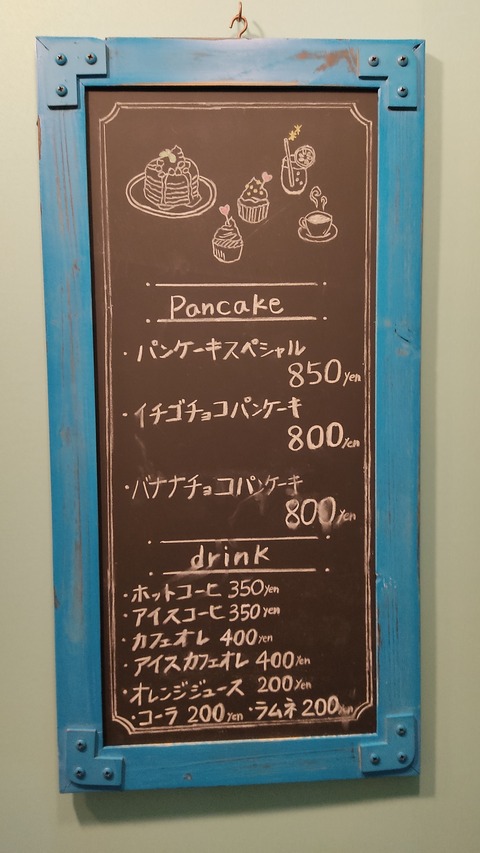 Pancake
・パンケーキスペシャル
850yen
・イチゴチョコパンケーキ
800yen
・バナナチョコパンケーキ
800yen
drink
・ホットコーヒ 350yen
・アイスコーヒ 350yen
・カフェオレ 400yen
・アイスカフェオレ 400yen
・オレンジジュース 200yen
・コーラ 200yen ・ラムネ 200yen